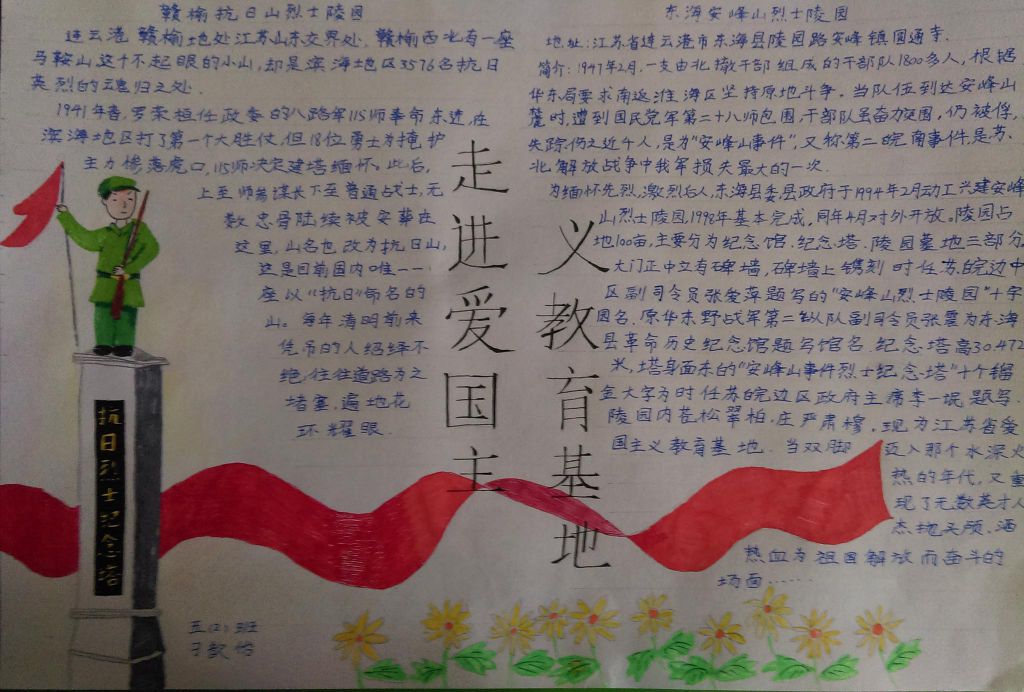 赣榆抗日山烈士陵园
连云港赣榆地处江苏山东交界处,赣榆西北有一座
马鞍山,这个不起眼的小山,却是滨海地区3576名抗日
英烈的魂归之处.
1941年春,罗荣桓任政委的八路军115师奉命东进,在
滨海地区打了第一个大胜仗,但18位勇士为掩护
主力惨落虎口,115师决定建塔缅怀。此后,
上至师参谋长下至普通战士,无
数忠骨陆续被安葬在
这里,山名也改为抗日山,
这是目前国内唯一一
座以“抗日”命名的
山。每年清明前来
凭吊的人络绎不
绝,往往道路为之
堵塞,遍地花
环耀眼.
走进爱国主
义教育基地
东海安峰山烈士陵园
地址:江苏省连云港市东海县陵园路安峰镇园通寺.
简介:1947年2月,一支由北撤干部组成的干部队1800多人,根据
华东局要求南返淮海区坚持原地斗争。当队伍到达安峰山
麓时,遭到国民党军第二十八师包围,干部队虽奋力突围,仍被俘,
失踪伤之近千人,是为“安峰山事件”,又称第二皖南事件,是苏、
北解放战争中我军损失最大的一次.
为缅怀先烈,激烈后人,东海县委县政府于1994年2月动工兴建安峰
山烈士陵园,1998年基本完成,同年4月对外开放。陵园占
地100亩,主要分为纪念馆.纪念塔.陵园墓地三部分,
大门正中立有碑墙,碑墙上镌刻时任苏皖边中
区副司令员张爱萍题写的“安峰山烈士陵园”十字
园名.原华东野战军第二纵队副司令员张震为东海
县革命历史纪念馆题写馆名.纪念塔高30.472
米,塔身面东的“安峰山事件烈士纪念塔”十个镏
金大字为时任苏皖边区政府主席李一氓题写.
陵园内苍松翠柏,庄严肃穆。现为江苏省爱
国主义教育基地.当双脚迈入那个水深火
热的年代,又重
现了无数英才人
杰抛头颅、洒
热血为祖国解放而奋斗的
场面……
抗日烈士纪念塔
五(2)班